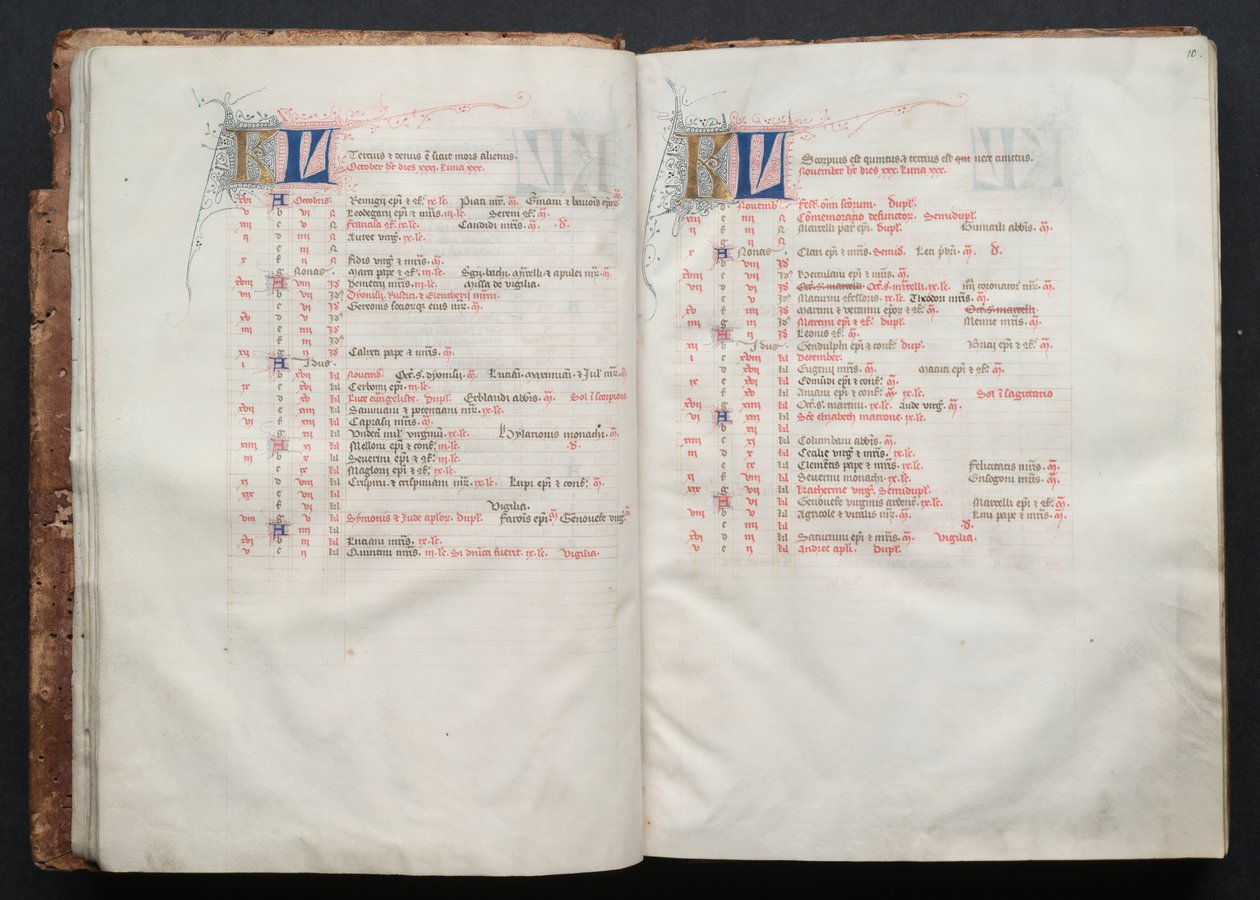 KL
Tercius & denus ē sicut mors alienus.
October ht dies xxxj. Luna xxx.
xvi A Octobris. Remigii epi & 9f. ix. le. Piati mr̄. m̄. Germani & epōꝝ
v b vi N Leodegarij epi & mr̄is. iii. le. Sereni 9f. m̄.
xiii c v N Francisci 9f. ix. le. Candidi mr̄is. m̄. .d.
ii d iiii N Auree virḡ. ix. le.
e iii N
x f ii N Fidis virḡ & mr̄is. m̄.
g Nonas. Marci pape & 9f. iii. le. Sgii. bachi. Mr̄celli & apulei mr̄. m̄.
xviii A viii Id Demetrij mr̄is. iii. le. Missa de vigilia.
vii b vii Id Dyonisij. Rustici. & Eleutherij mr̄um.
c vi Id Gereonis socioꝝq̄ eius mr̄. m̄.
xv d v Id
iiii e iiii Id
f iii Id
xii g ii Id Calixti pape & mr̄is. m̄.
i A Idus.
b xvii kl Novemb. Oct. s. dyonisij. m̄. Luciani. maximiani. & Jul mr̄. m̄.
ix c xvi kl Cerboni epi. iii. le.
d xv kl Luce euāgeliste. Dupl. Erblandi abb̄is. m̄. Sol ī scorpione
xvii e xiiii kl Saviniani & potentiani mr̄. ix. le.
vi f xiii kl Caprasij mr̄is. m̄.
g xii kl Undecī mil virginū. ix. le. Hylarionis monachi. m̄.
xiiii A xi kl Melloni epi & conf. iii. le. .d.
iii b x kl Severini epi & 9f. iii. le.
c ix kl Maglorij epi & 9f. ix. le.
xi d viii kl Crispini. & crispiniani mr̄. ix. le. Lupi epi & conf. m̄.
xix e vii kl
f vi kl Vigilia.
viii g v kl Symonis & Jude aplor̄. Dupl. Faronis epi m̄ Genouefe virḡ.
A iiii kl
xvi b iii kl Luciani mr̄is. ix. le.
v c ii kl Quintini mr̄is. iii. le. Si dn̄ica fuerit. ix. le. Vigilia.
10.
KL
Scorpius est quintus. & tercius est nece cinctus.
November ht dies xxx. Luna xxx.
d Novemb. Fest. oīm scōrum. Dupl.
xiii e iiii N Cōmemoratio defunctor̄. Semidupl.
ii f iii N Marcelli par epi. Dupl. Huimaili abb̄is. m̄.
g ii N
x A Nonas. Clari epi & mr̄is. Semid. Leti pb̄ri. m̄. d.
b viii Id
xviii c vii Id Herculani epi & mr̄is. m̄.
vii d vi Id Oct. s. marcelli. Oct. s. mr̄celli. ix. le. iiii coronatoꝝ mr̄. m̄.
e v Id Maturini 9fessoris. ix. le. Theodori mr̄is. m̄.
xv f iiii Id Martini & veranni epoꝝ & 9f. m̄. Oct. s. marcelli
iiii g iii Id Martini epi & 9f. Dupl. Menne mr̄is. m̄.
A ii Id Leonis 9f. m̄.
xii b Idus. Gendulphi epi & conf. Dup. Bricij epi & 9f. m̄.
i c xviii kl December.
d xvii kl Eugenij mr̄is. m̄. Macuti epi & 9f. m̄.
ix e xvi kl Edmūdi epi & conf. m̄.
f xv kl Aniani epi & conf. m̄. ix. le. Sol ī sagittario
xvii g xiiii kl Oct. s. martini. ix. le. Aude virḡ. m̄.
vi A xiii kl Scē elizabeth matrone. ix. le.
b xii kl
xiiii c xi kl Columbani abb̄is. m̄.
iii d x kl Cecilie virḡ & mr̄is. ix. le.
e ix kl Clemētis pape & mr̄is. ix. le. Felicitatis mr̄is. m̄.
xi f viii kl Severini monachi. ix. le. Grisogoni mr̄is. m̄.
xix g vii kl Katherine virḡ. Semidupl.
A vi kl Genouefe virginis ardent. ix. le. Marcelli epi & 9f. m̄.
viii b v kl Agricole & vitalis mr̄. m̄. Lini pape & mr̄is. m̄.
c iiii kl .d.
xvi d iii kl Saturnini epi & mr̄is. m̄. Vigilia.
v e ii kl Andree apli. Dupl.